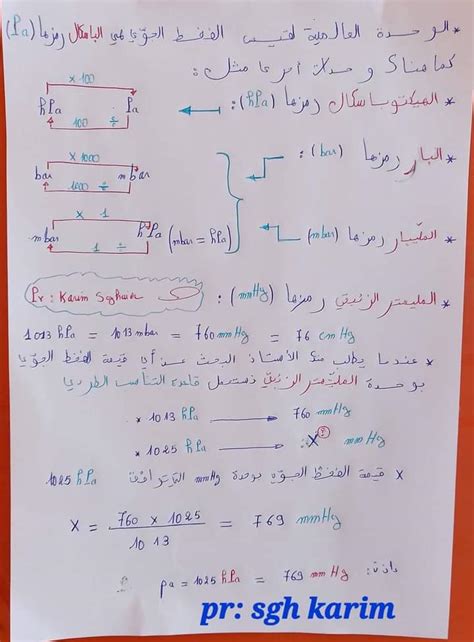 * الوحدة العالمية لقيس الضغط الجوّي هي الباسكال رمزها (Pa)
كما هناك وحدات أخرى مثل:
* الهيكتوباسكال رمزها (hPa):
x 100
hPa Pa
100 ÷
* البار رمزها (bar):
x 1000
bar mbar
1000 ÷
* المليبار رمزها (mbar)
x 1
mbar hPa (mbar = hPa)
1 ÷
* المليمتر الزئبقي رمزها (mmHg):
Pr: Karim Seghaier
1013 hPa = 1013 mbar = 760 mmHg = 76 cmHg
* عندما يطلب منك الأستاذ البحث عن أي قيمة الضغط الجوّي
بوحدة المليمتر الزئبقي نستعمل قاعدة التناسب الطردي
* 1013 hPa → 760 mmHg
* 1025 hPa → X mmHg
X قيمة الضغط الجوّي بوحدة mmHg التي ترافق 1025 hPa
X = 760 x 1025 / 1013 = 769 mmHg
إذن: pa = 1025 hPa = 769 mmHg
pr: sgh karim